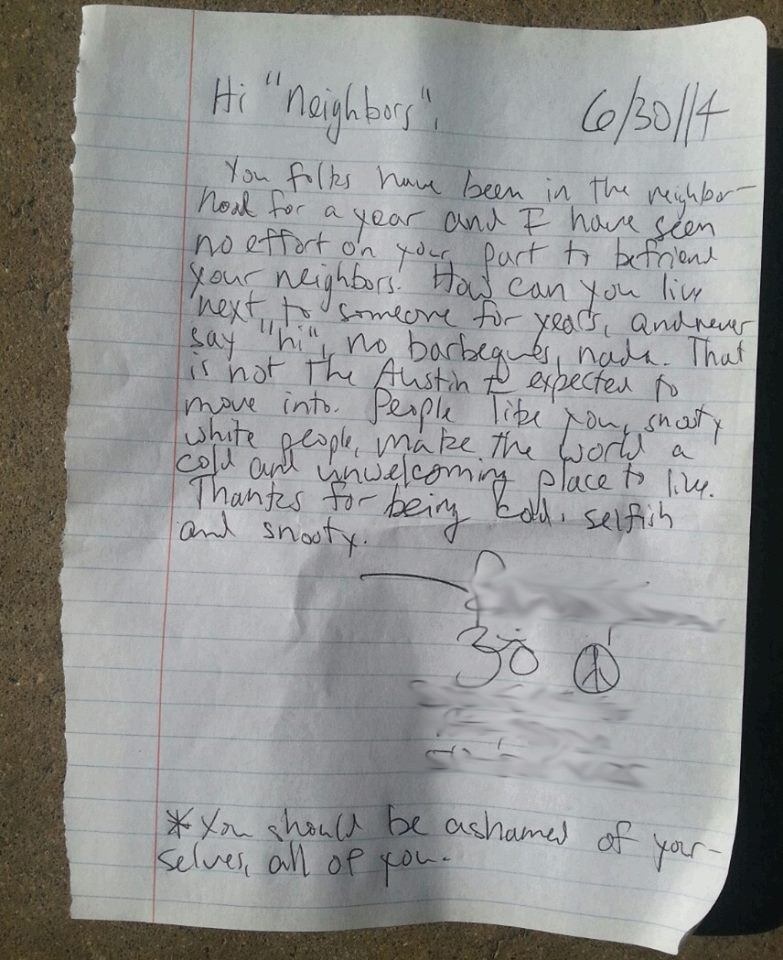 Hi "Neighbors",
6/30/14
You folks have been in the neighbor-
hood for a year and I have seen
no effort on your part to befriend
your neighbors. How can you live
next to someone for years, and never
say "hi", no barbeques, nada. That
is not the Austin I expected to
move into. People like you, snooty
white people, make the world a
cold and unwelcoming place to live.
Thanks for being cold, selfish
and snooty.
*You should be ashamed of your-
selves, all of you.